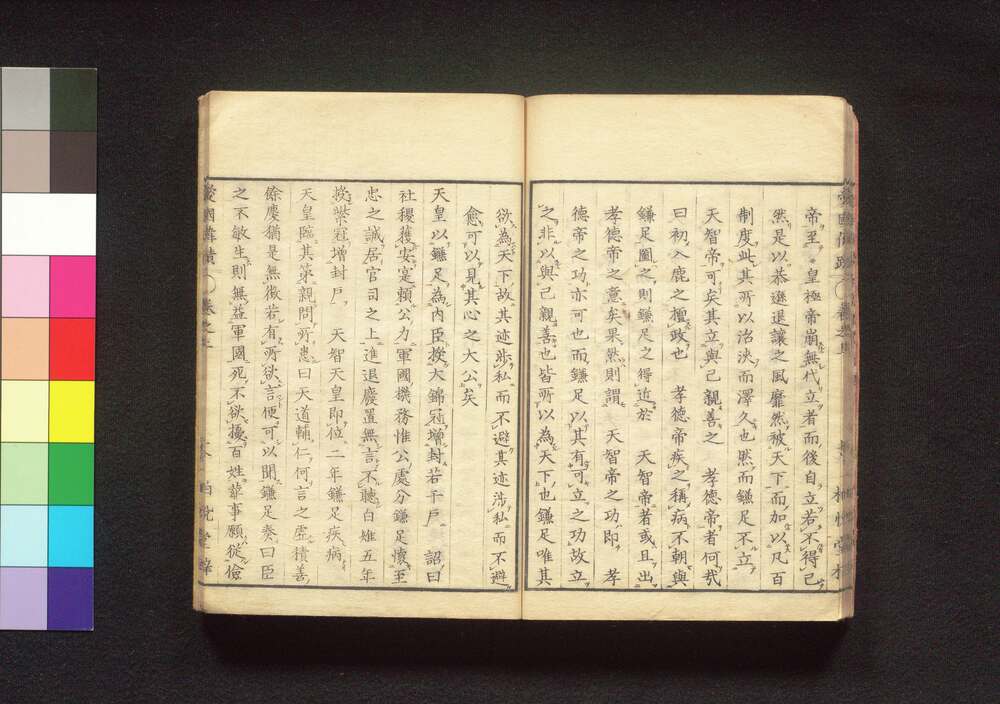 帝至。皇極帝崩無代立者而後自立若不得已
然是以恭遜退讓之風靡然被天下而加以凡百
制度此其所以洽浹而澤久也然而鎌足不立
天智帝可矣其立與己親善之 孝德帝者何哉
曰初入鹿之擅政也 孝德帝疾之稱病不朝與
鎌足圖之則鎌足之得近於 天智帝者或且出
孝德帝之意矣果然則謂 天智帝之功即 孝
德帝之功亦可也而鎌足以其有可立之功故立
之非以與己親善也皆所以為天下也鎌足唯其
欲為天下故其迹涉私而不避其迹涉私而不避
愈可以見其心之大公矣
天皇以鎌足為內臣授大錦冠增封若干戶 詔曰
社稷獲安寔賴公力軍國機務惟公處分鎌足懷至
忠之誠居官司之上進退廢置無言不聽白雉五年
授紫冠增封戶 天智天皇即位二年鎌足疾病
天皇臨其第親問所患曰天道輔仁何言之虛積善
餘慶猶是無徵若有所欲言便可以聞鎌足奏曰臣
之不敏生則無益軍國死不欲擾百姓葬事願從儉